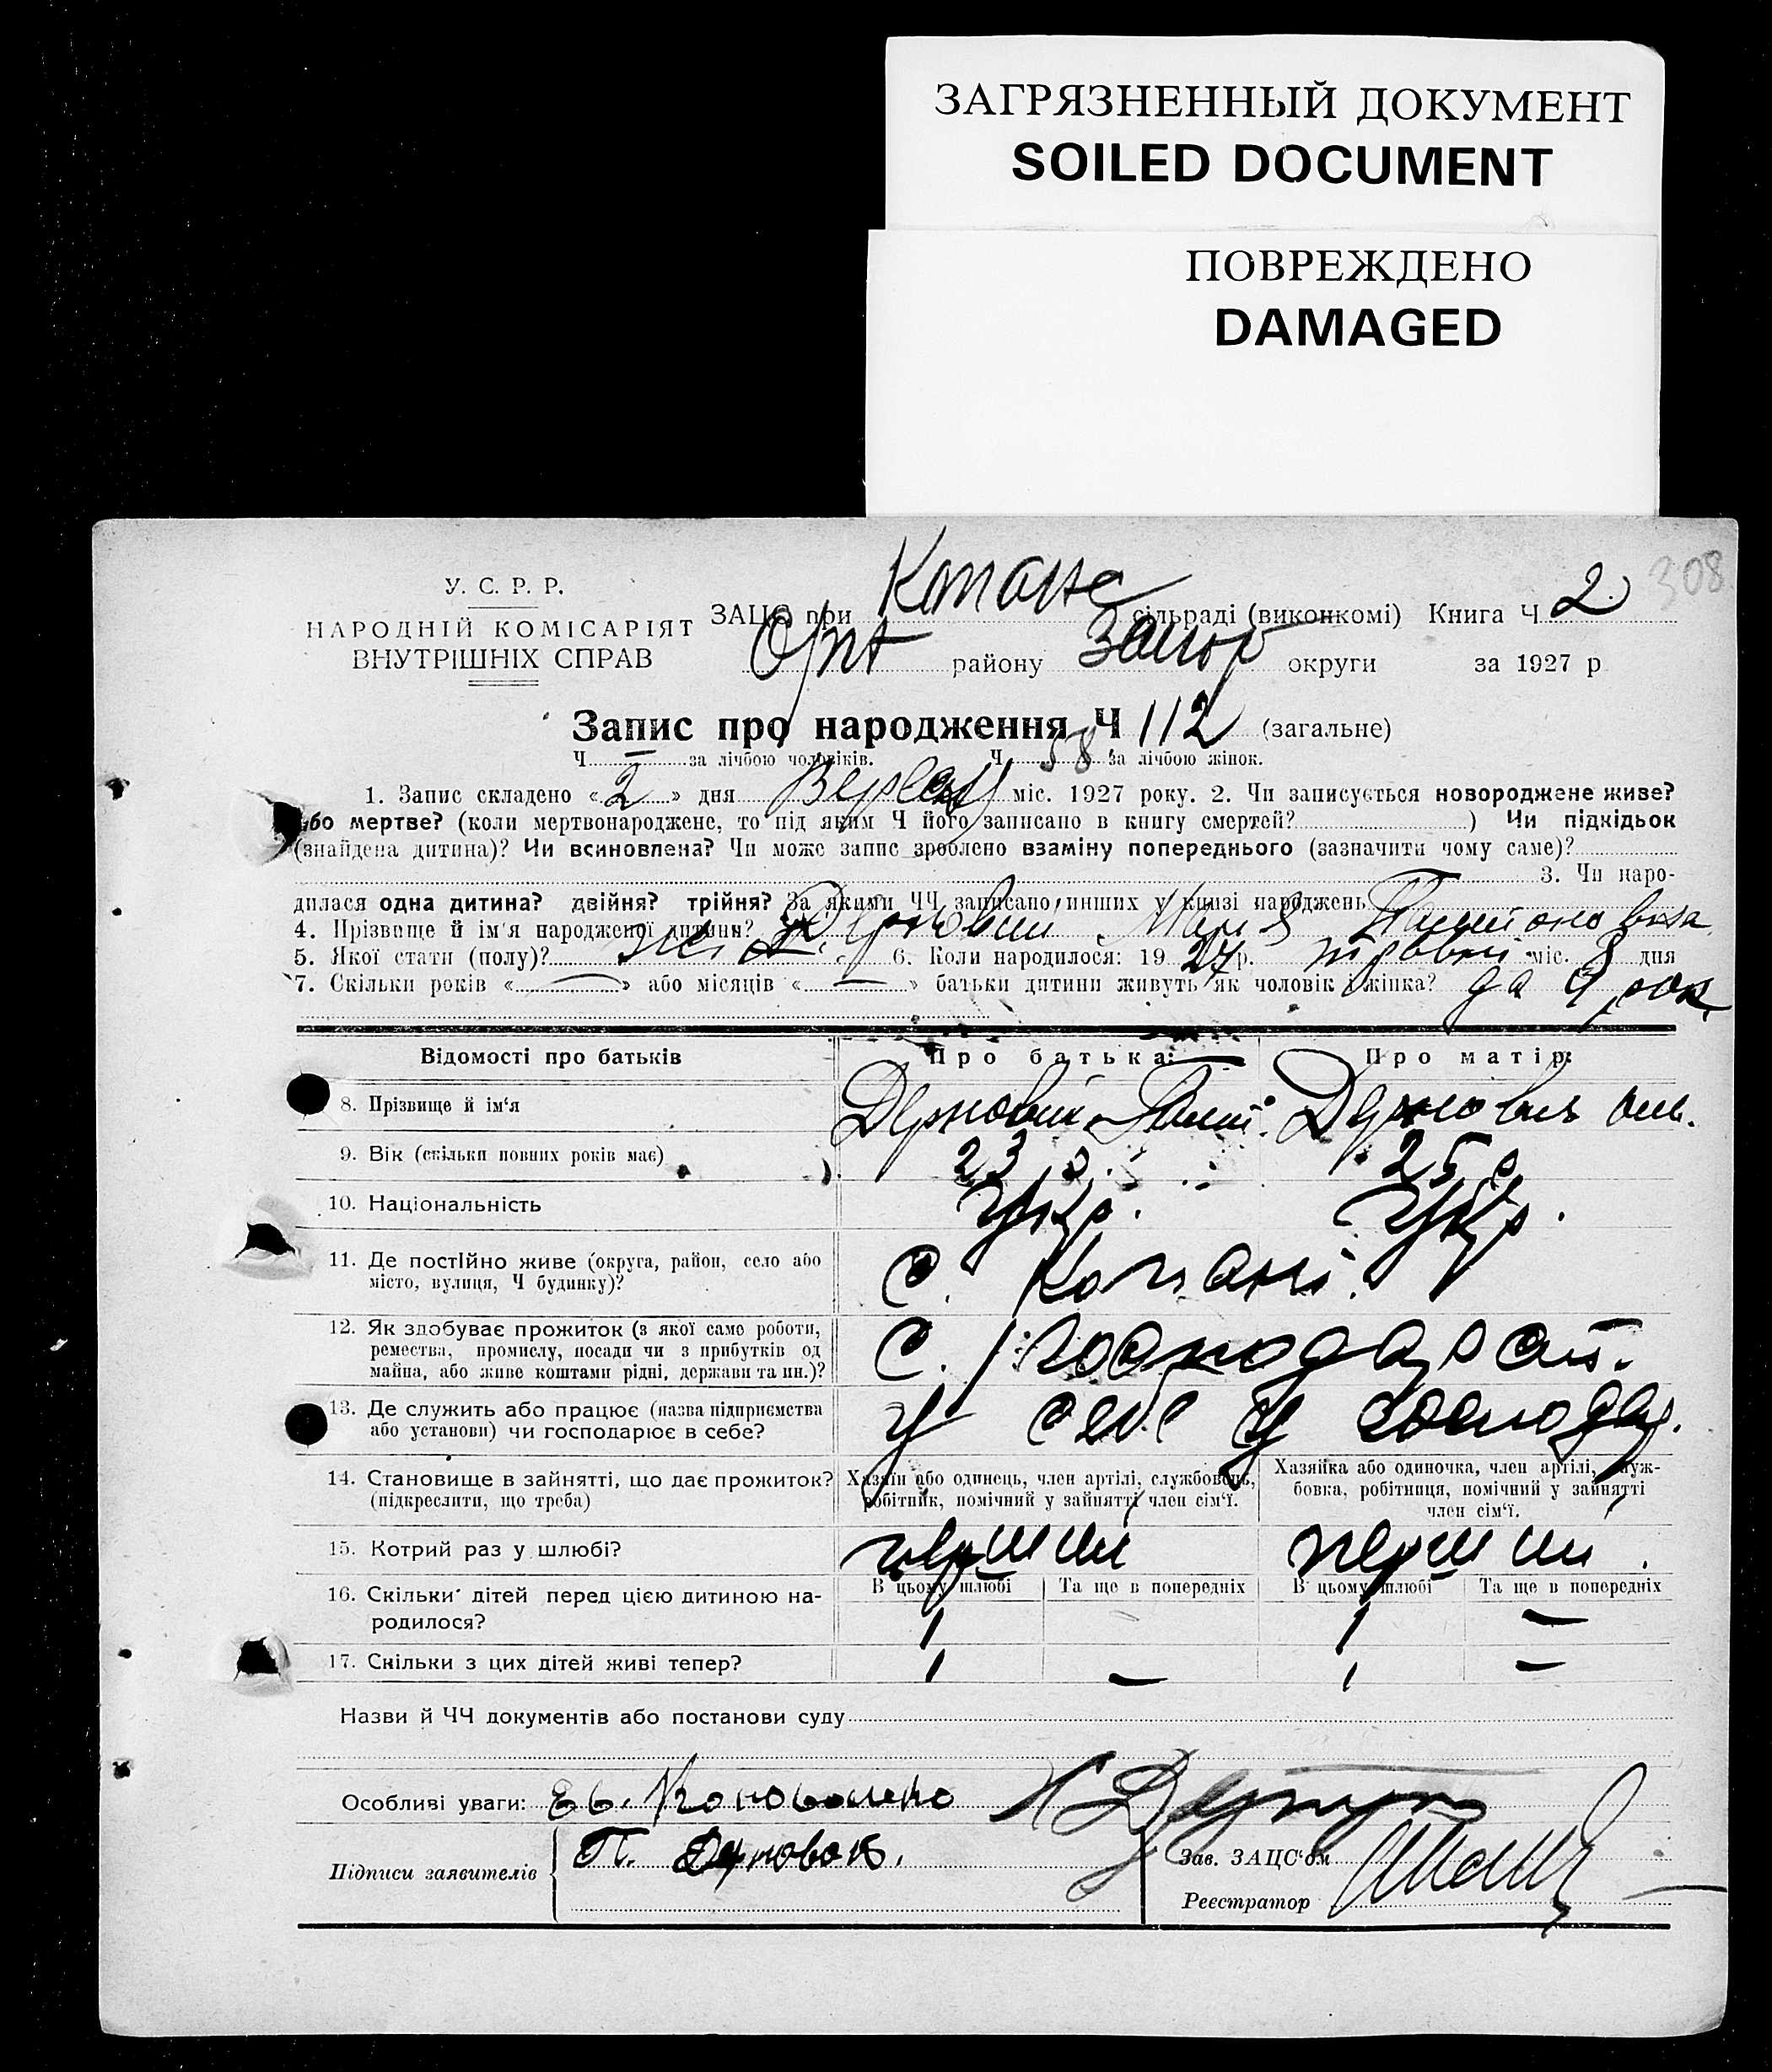 ЗАГРЯЗНЕННЫЙ ДОКУМЕНТ
SOILED DOCUMENT
ПОВРЕЖДЕНО
DAMAGED
308
У. С. Р. Р.
НАРОДНІЙ КОМІСАРІЯТ
ВНУТРІШНІХ СПРАВ
ЗАЦС при Копане сільраді (виконкомі) Книга Ч 2
Оріх району Запор округи за 1927 р
Запис про народження Ч 112 (загальне)
Ч — за лічбою чоловіків. Ч 58 за лічбою жінок.
1. Запис складено « 2 » дня Версня міс. 1927 року. 2. Чи записується новороджене живе?
або мертве? (коли мертвонароджене, то під яким Ч його записано в книгу смертей? ) Чи підкідьок
(знайдена дитина)? Чи всиновлена? Чи може запис зроблено взаміну попереднього (зазначити чому саме)?
3. Чи наро-
дилася одна дитина? двійня? трійня? За якими ЧЧ записано инших у книзі народжень
4. Прізвище й ім'я народженої дитини? Марія
5. Якої стати (полу)? жін. 6. Коли народилося: 19 27 р. травні міс. 8 дня
7. Скільки років « — » або місяців « — » батьки дитини живуть як чоловік і жінка?
Відомості про батьків Про батька: Про матір:
8. Прізвище й ім'я
9. Вік (скільки повних років має) 23 р. 25 р.
10. Національність Укр. Укр.
11. Де постійно живе (округа, район, село або
місто, вулиця, Ч будинку)? С. Копані.
12. Як здобуває прожиток (з якої само роботи,
ремества, промислу, посади чи з прибутків од
майна, або живе коштами рідні, держави та ин.)? С.
13. Де служить або працює (назва підприємства
або установи) чи господарює в себе? У себе у господар.
14. Становище в зайнятті, що дає прожиток?
(підкреслити, що треба)
Хазяїн або одинець, член артілі, службовець,
робітник, помічний у зайнятті член сім'ї.
Хазяйка або одиночка, член артілі, служ-
бовка, робітниця, помічний у зайнятті
член сім'ї.
15. Котрий раз у шлюбі? перший перший.
В цьому шлюбі Та ще в попередніх В цьому шлюбі Та ще в попередніх
16. Скільки дітей перед цією дитиною на-
родилося? 1 1 —
17. Скільки з цих дітей живі тепер? 1 — 1 —
Назви й ЧЧ документів або постанови суду
Особливі уваги: Ев.
Підписи заявителів П.
Зав. ЗАЦС'ом
Реєстратор